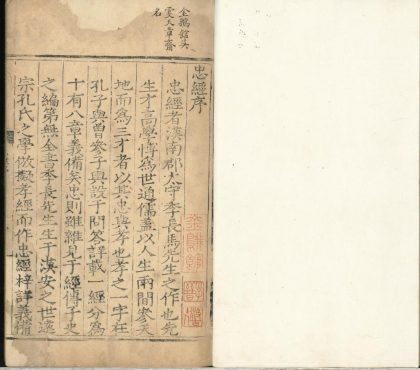 忠經序
忠經者漢南郡太守季長馬先生之作也先
生才高學博為世通儒蓋以人生兩間參天
地而為三才者以其忠與孝也孝之一字在
孔子與曾參子與設于問答詳載一經分為
十有八章義備矣忠則雖雜見于經傳子史
之編第無全書季長先生生于漢安之世遠
宗孔氏之學倣擬孝經而作忠經梓詳義
名